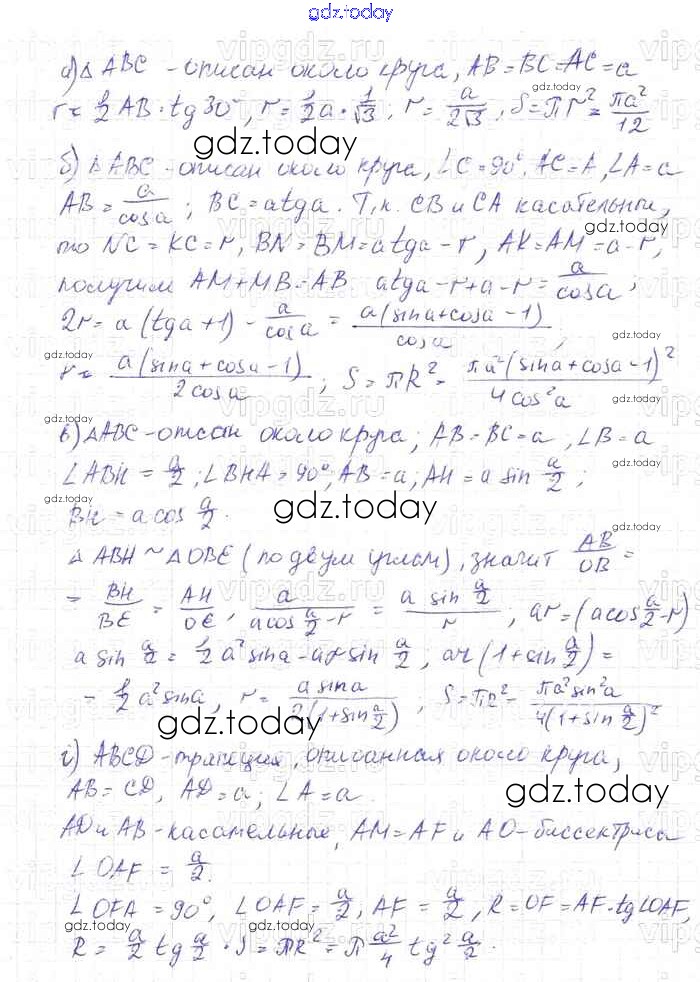 gdz.today
а) Δ ABC - описан около круга, AB = BC = AC = a
r = 1/2 AB · tg 30°, r = 1/2 a · 1/√3, r = a/2√3, S = πr² = πa²/12
gdz.today
б) ΔABC - описан около круга, ∠C = 90°, AC = A, ∠A = a
AB = a/cosa ; BC = atga. Т.к. CB и CA касательные,
то NC = KC = r, BN = BM = atga - r, AK = AM = a - r,
получим AM + MB = AB atga - r + a - r = a/cosa ;
2r = a (tga + 1) - a/cosa = a(sina + cosa - 1)/cosa ;
r = a(sina + cosa - 1)/2cosa ; S = πR² = πa²(sina + cosa - 1)²/4cos²a
в) ΔABC - описан около круга; AB = BC = a, ∠B = a
∠ABH = a/2 ; ∠BHA = 90°, AB = a; AH = a sin a/2 ;
BH = a cos a/2.
gdz.today
Δ ABH ~ Δ OBE (по двум углам), значит AB/OB =
= BH/BE = AH/OE, a/(acos a/2 - r) = a sin a/2 / r ; ar = (acos a/2 - r)
a sin a/2 = 1/2 a² sina - ar sin a/2, ar (1 + sin a/2) =
- 1/2 a² sina, r = a sina/2(1 + sin a/2), S = πR² = πa² sin²a/4(1 + sin a/2)²
gdz.today
г) ABCD - трапеция, описанная около круга,
AB = CD, AD = a; ∠A = a.
gdz.today
AD и AB - касательные, AM = AF и AO - биссектриса
∠OAF = a/2.
∠OFA = 90°, ∠OAF = a/2, AF = a/2, R = OF = AF · tg∠OAF,
R = a/2 tg a/2 · S = πR² = π a²/4 tg² a/2.